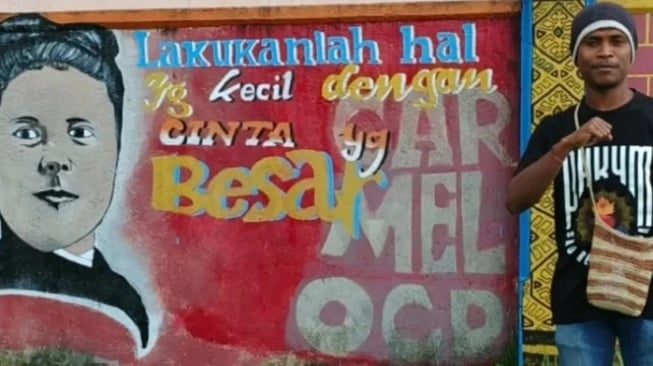 Lakukanlah hal
yg kecil dengan
CINTA yg
Besar
CAR
MEL
OCD